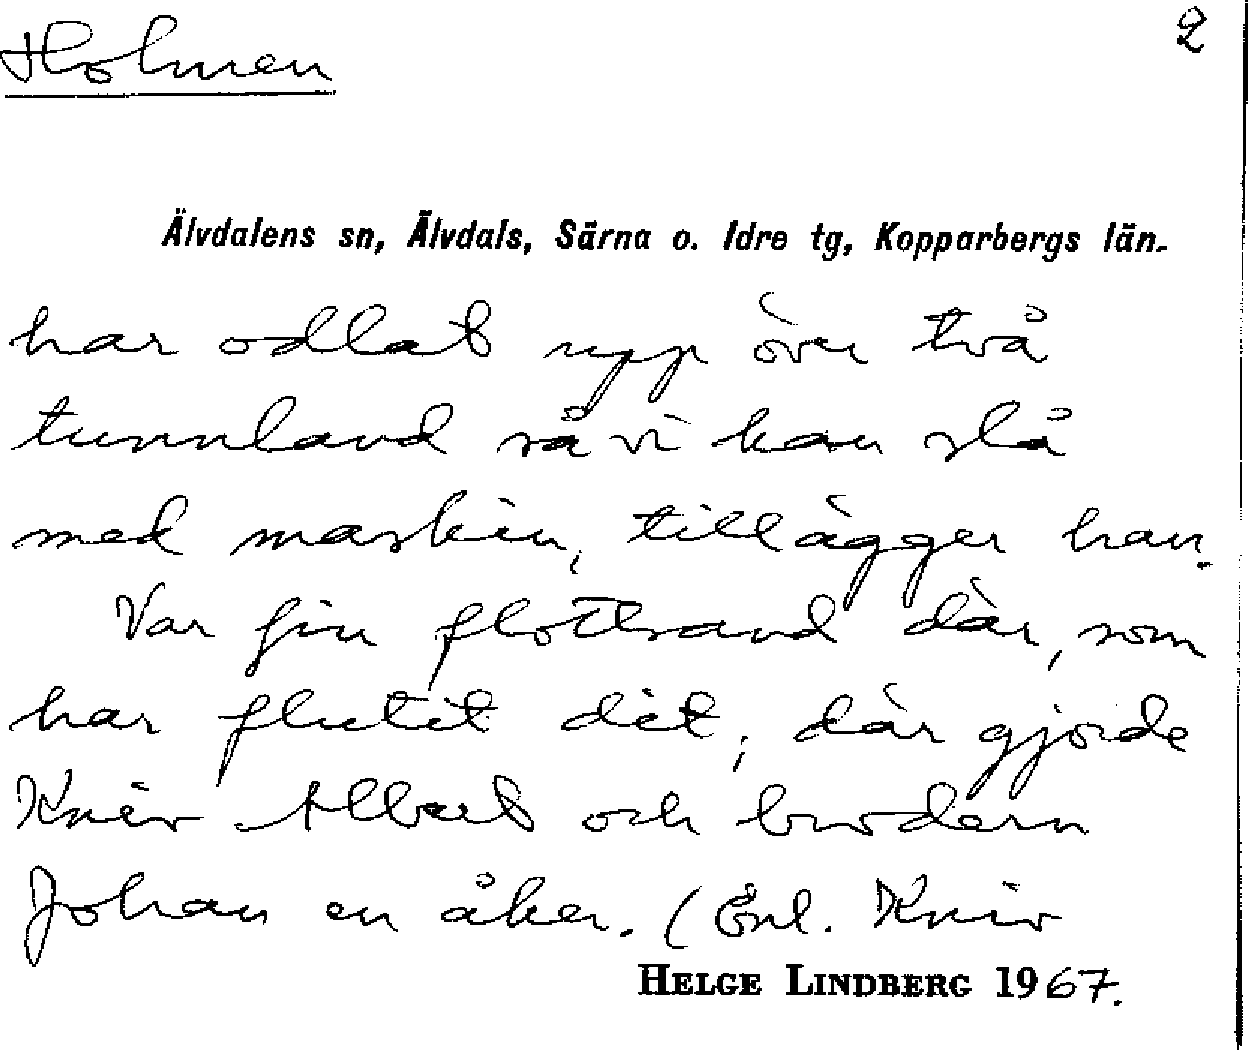 Holmen
2
Älvdalens sn, Älvdals, Särna o. Idre tg, Kopparbergs län.
har odlat upp över två
tunnland så vi kan slå
med maskin, tillägger han.
Var fin flottsand där, som
har flutit dit, där gjorde
Kniv Albert och brodern
Johan en åker. (Enl. Kniv
HELGE LINDBERG 1967.